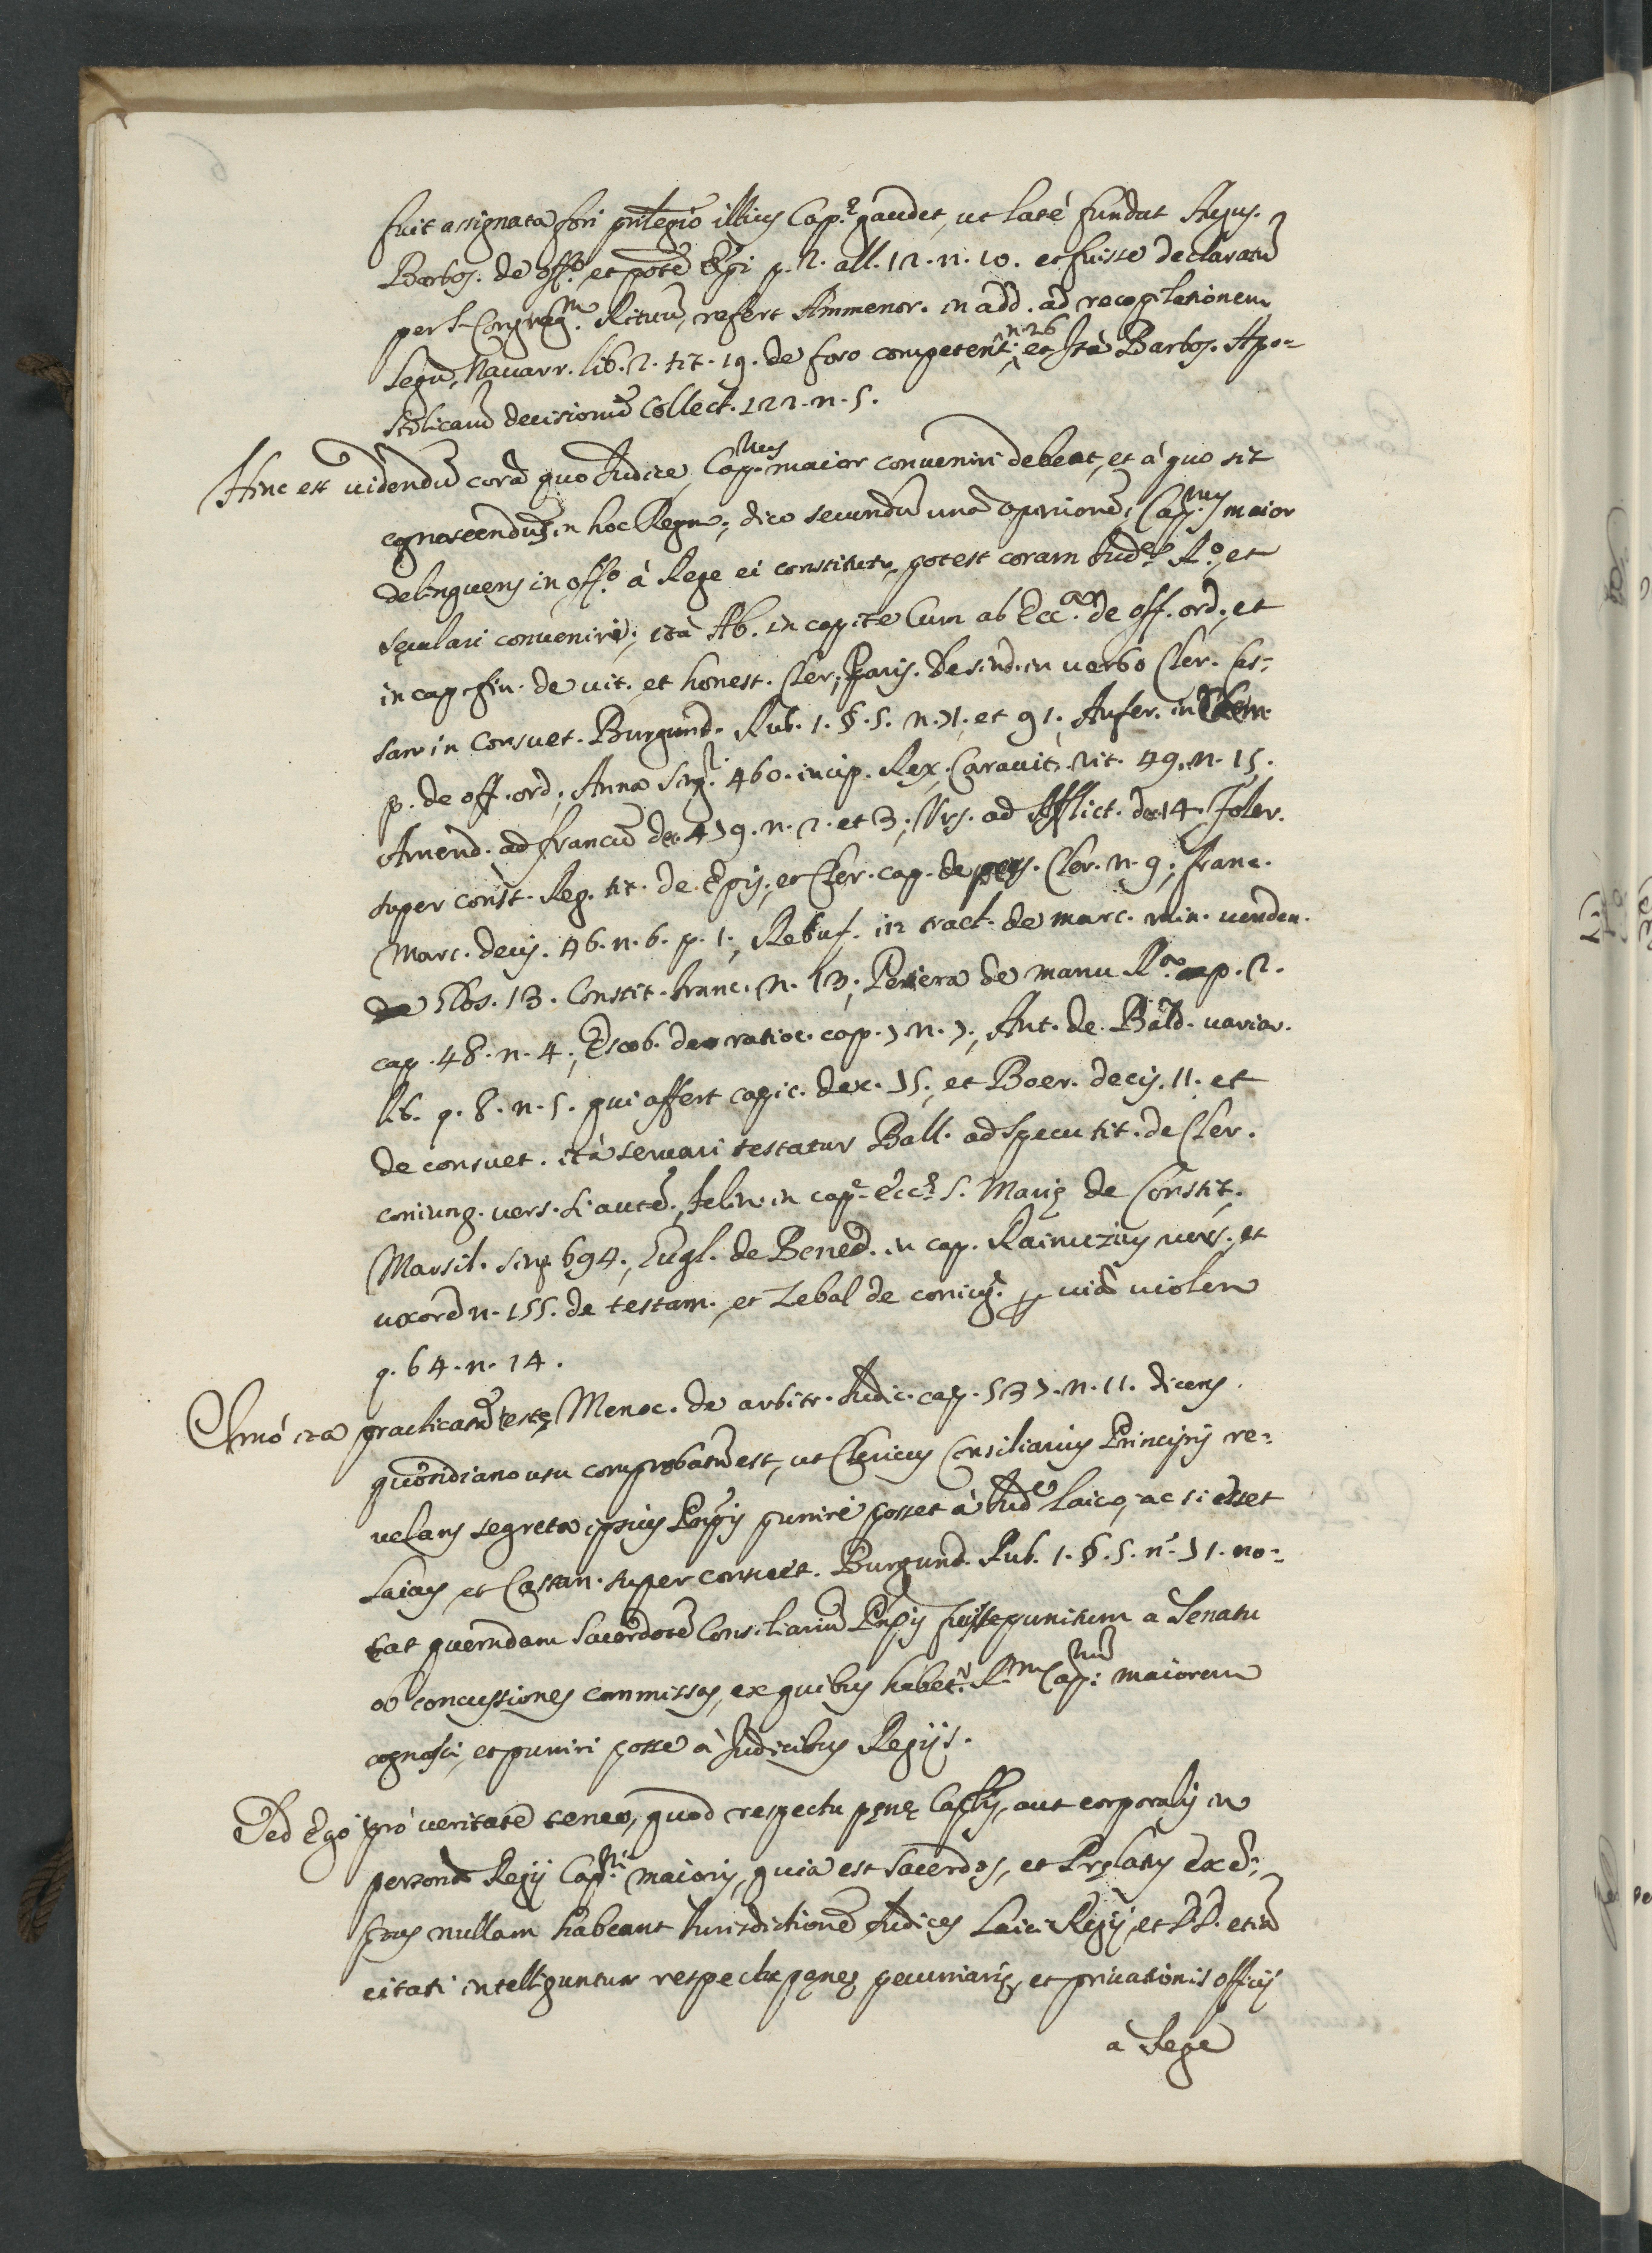 fuit assignata fori privilegio illius Cap.ę gaudet, ut latè fundat Augus.
Barbos. de off.o et potẽ Ẽpi p. 2. all. 12. n. 10. et fuisse declaratũ
per S. Congreg.m Rituũ, refert Ammenor. in add. ad recopilationem
Legũ Nauarr. lib. 2. tit. 19. de foro competent: n. 26 et Ità Barbos. Apo=
stolicarũ decisionũ Collect. 122. n. 5.
Hinc est uidendũ corã quo Iudice, Cap.nus maior conueniri debeat, et à quo sit
cognoscendus in hoc Regno; dico secundũ unã opinionẽ, Cap.nus maior
delinquens in off.o à Rege ei constituto, potest coram Iud.e R.o, et
sęculari conueniri; ità Ab. in capite Cum ab Ecc.arũ de off. ord., et
in cap. fin. de uit. et honest. Cler., Paris. de sind. in uerbo Cler. Cas=
san. in Consuet. Burgund. Rub. 1. §. 5. n. 71. et 91., Aufer. in Clem.
p. de off. ord., Anna sing. 460. incip. Rex, Carauit. rit. 49. n. 15.
Amend. ad francũ dec. 479. n. 2. et 3., Urs. ad Afflict. dec. 14. Foler.
super const. Reg. tit. de Epis., et Cler. cap. de pers. Cler. n. 9; franc.
Marc. decis. 46. n. 6. p. 1., Rebuf. in tract. de marc. min. uenden.
Glos. 13. Constit. franc. n. 13; Pereira de manu R.a p. 2.
cap. 48. n. 4., Escob. de ratioc. cap. 7 n. 7., Ant. de Bald. uariar.
lib. q. 8. n. 5. qui affert capic. dec. 75., et Boer. decis. 11. et
de consuet. ità seruari testatur Ball. ad Specu tit. de Cler.
coniung. uers. si autẽ, Felin. in cap.e Ecc.ę S. Marię de Constit.
Marsil. sing. 694., Gugl. de Bened. in cap. Rainuzius uers., et
uxorẽ n. 155. de testam., et Zebal de coniug. uiã uiolen
q. 64. n. 14.
Imò ita practicatũ testę Menoc. de arbitr. Iudic. cap. 537. n. 11. dicens
quotidiano usu comprobatũ est, ut Clericus Consiliarius Principis re=
uelans segreta ipsius Prĩpis puniri posset à Iud.e laico, ac si esset
Laicus et Cassan. super consuet. Burgund. Rub. 1. §. 5. n.o 71. no=
tat quemdam Sacerdotẽ Consiliariũ Prĩpis fuisse punitum à Senatu
ob concussiones commissas, ex quibus habet.r R.m Cap.num maiorem
cognosci, et puniri posse à Iudicibus Regijs.
Sed Ego pro ueritate teneo, quod respectu pęnę Cap.lis, aut corporalis in
persona Regij Cap.ni maioris, quia est Sacerdos, et Pręlatus Exẽ=
ptus nullam habeant Iurisdictionẽ Iudices Laici Regij, et DD. etiã
citati intelliguntur respectu pęnę pecuniarię, et priuationis officij
à Lege